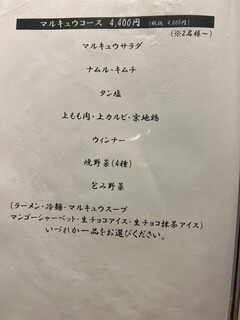 マルキュウコース 4,400円 (税抜 4,000円)
(※2名様~)
マルキュウサラダ
ナムル・キムチ
タン塩
上もも肉・上カルビ・京地鶏
ウィンナー
焼野菜(4種)
包み野菜
(ラーメン・冷麺・マルキュウスープ
マンゴーシャーベット・生チョコアイス・生チョコ抹茶アイス)
いづれか一品をお選びください。